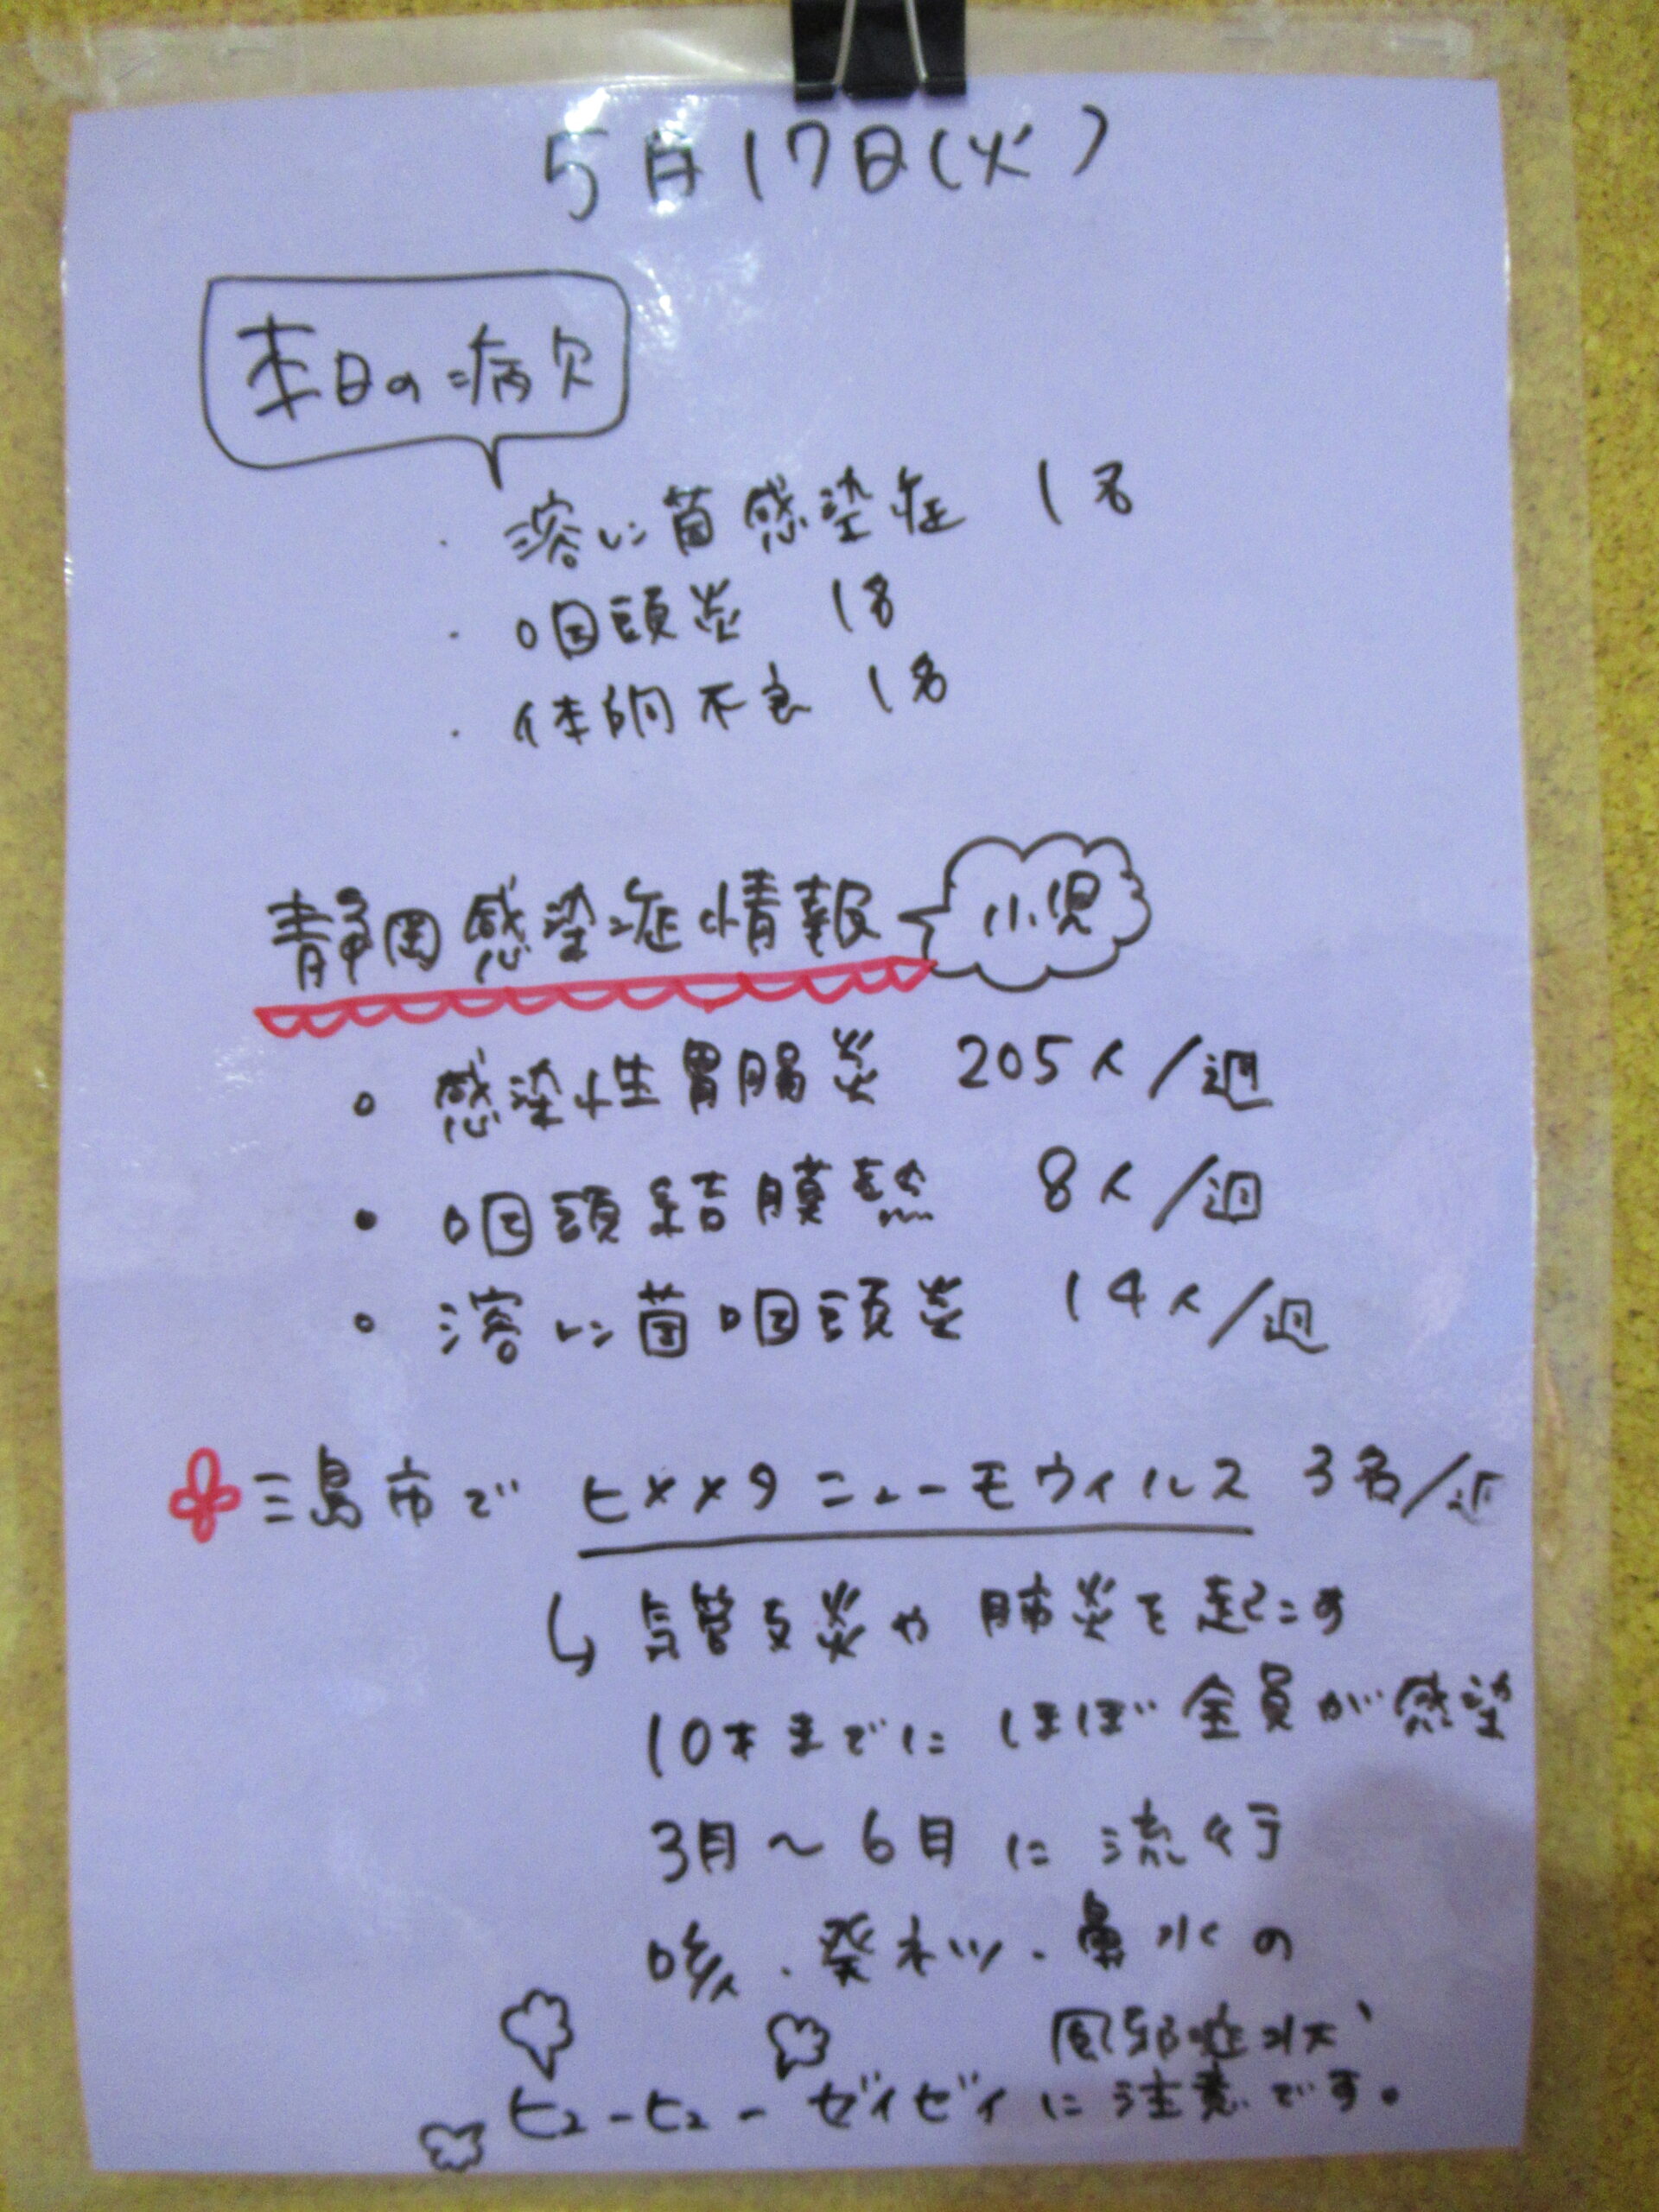 5月17日(火)
本日の病欠
・溶レン菌感染症 1名
・咽頭炎 1名
・体調不良 1名
静岡感染症情報 小児
• 感染性胃腸炎 205人/週
• 咽頭結膜熱 8人/週
• 溶レン菌咽頭炎 14人/週
三島市で ヒトメタニューモウィルス 3名/週
↳ 気管支炎や肺炎を起こす
10才までにほぼ全員が感染
3月〜6月に流行
咳・発ネツ・鼻水の
風邪症状、
ヒューヒューゼイゼイに注意です。